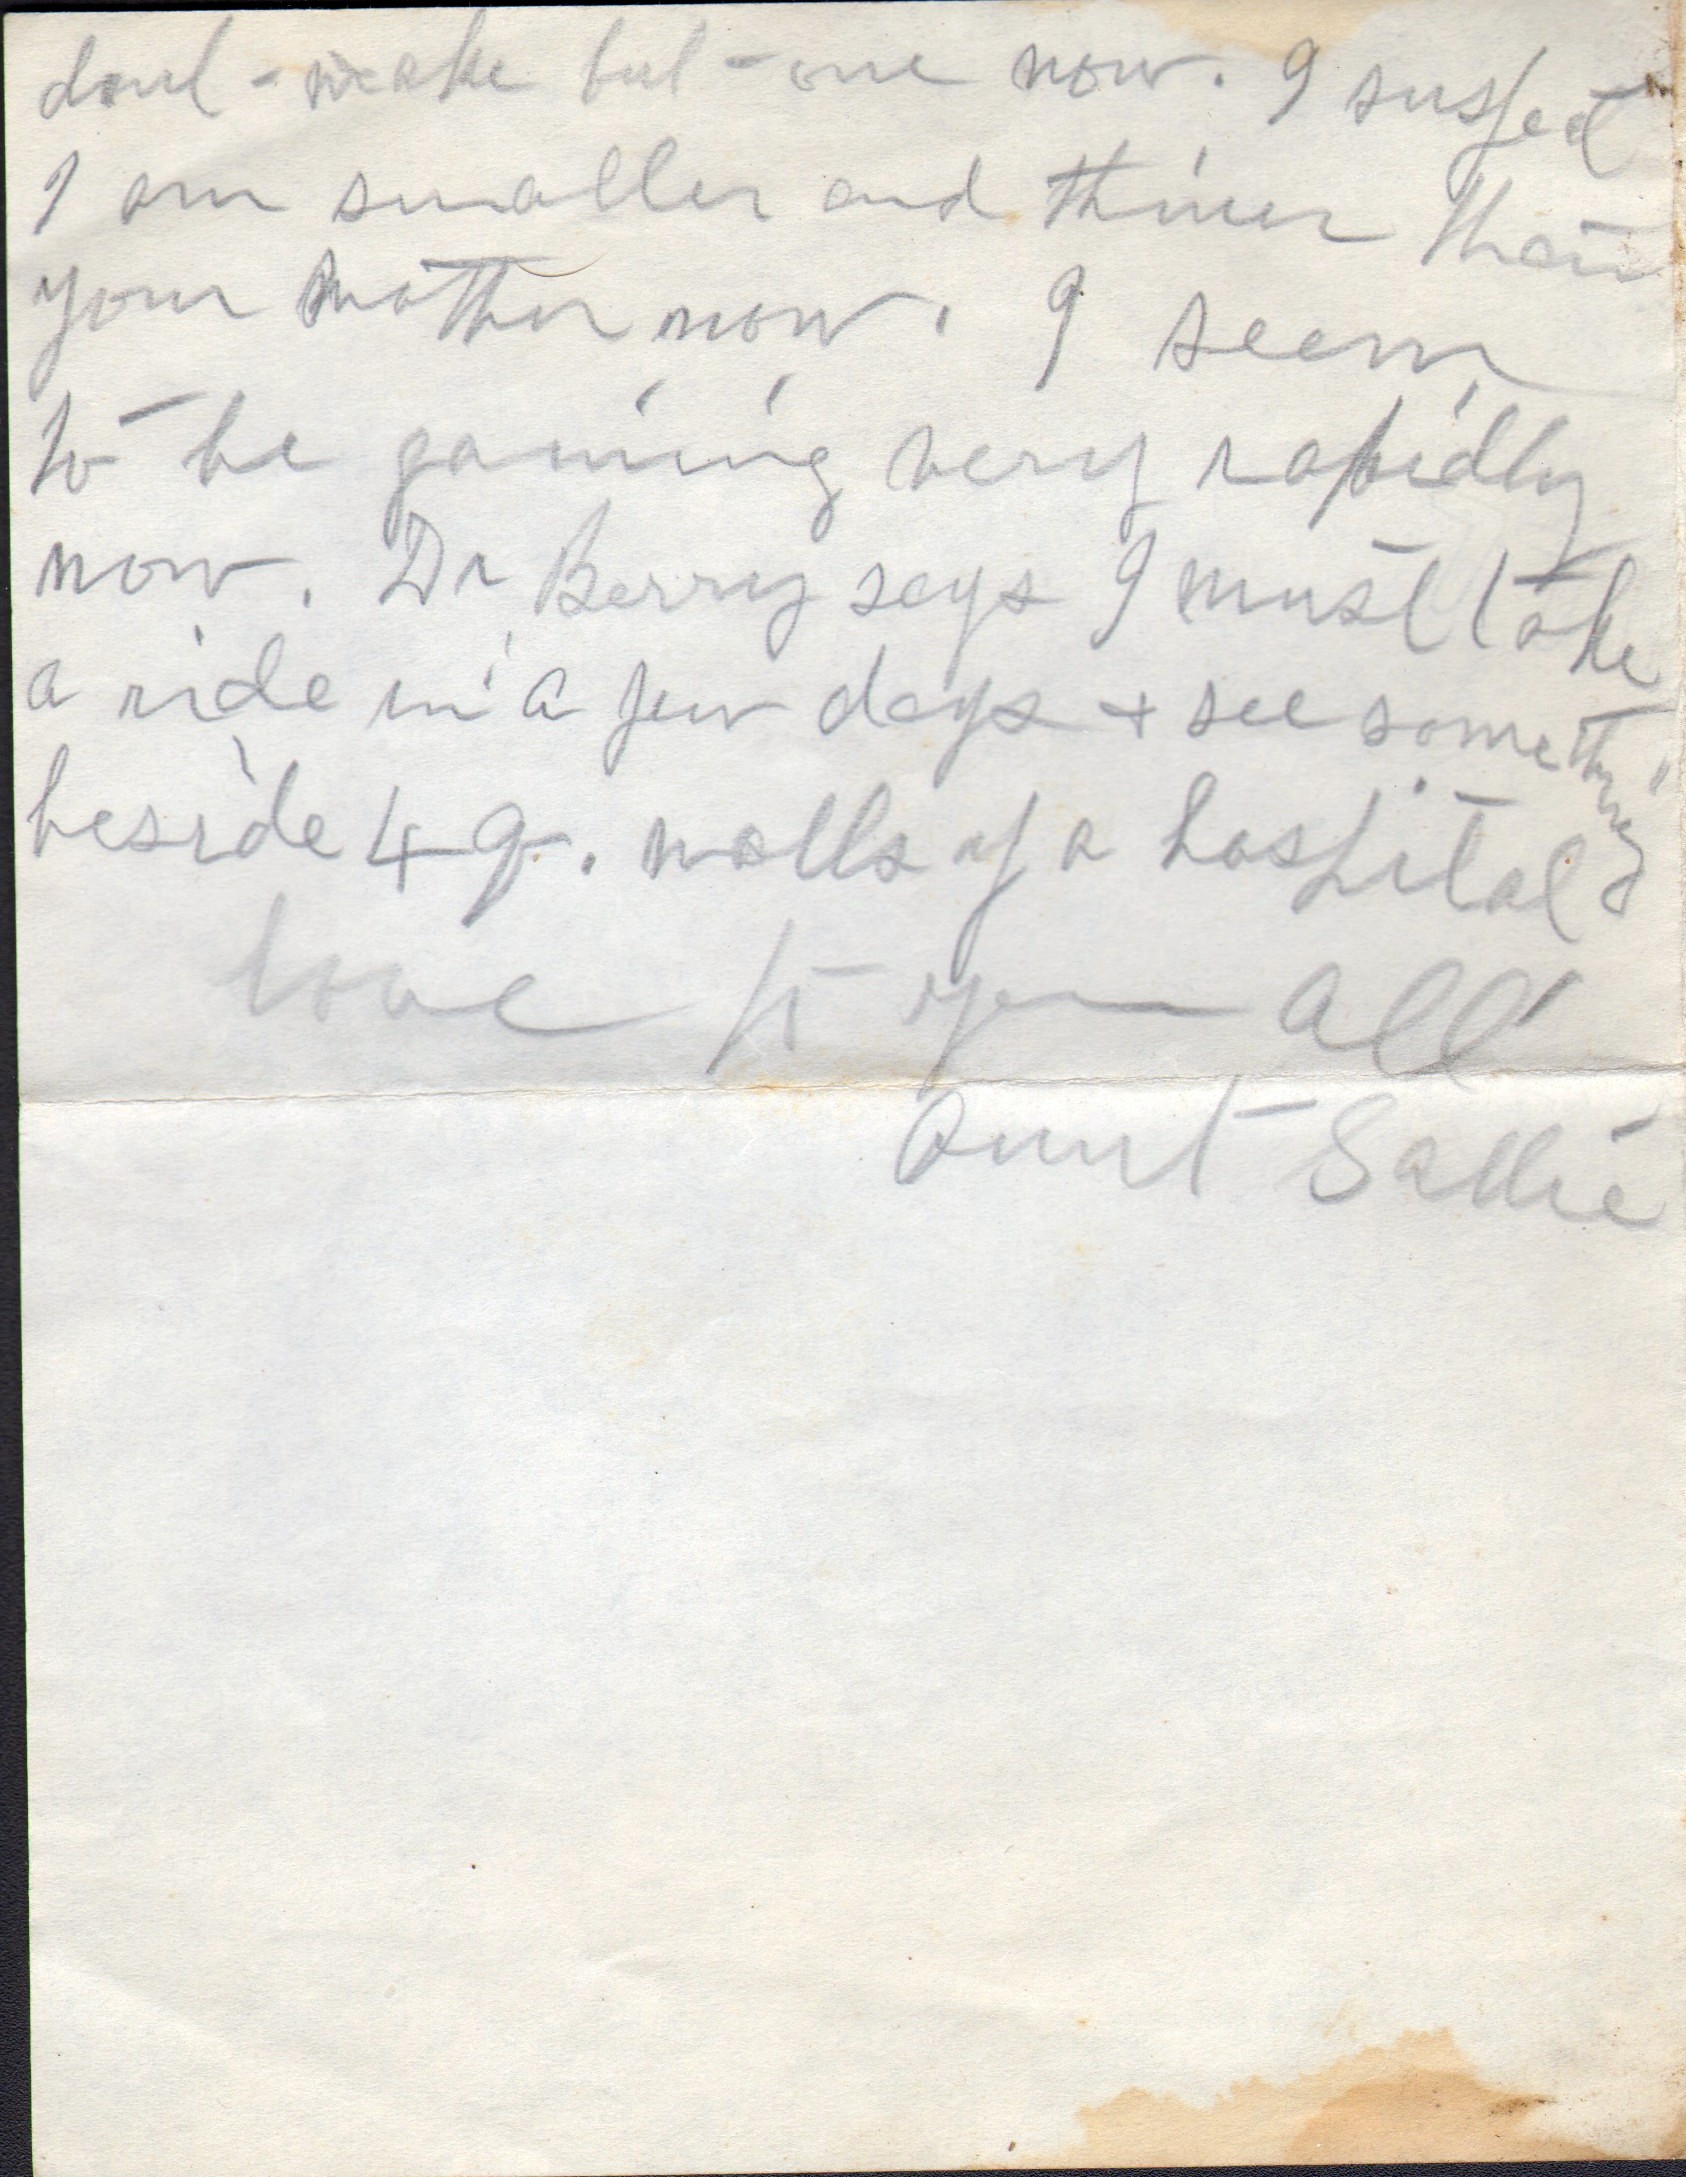 dont make but one now. I suspect
I am smaller and thiner than
your mother now. I seem
to be gaining very rapidly
now. Dr Berry says I must take
a ride in a few days + see something
beside 4 g. walls of a hospital
Love to you all
Aunt Sallie